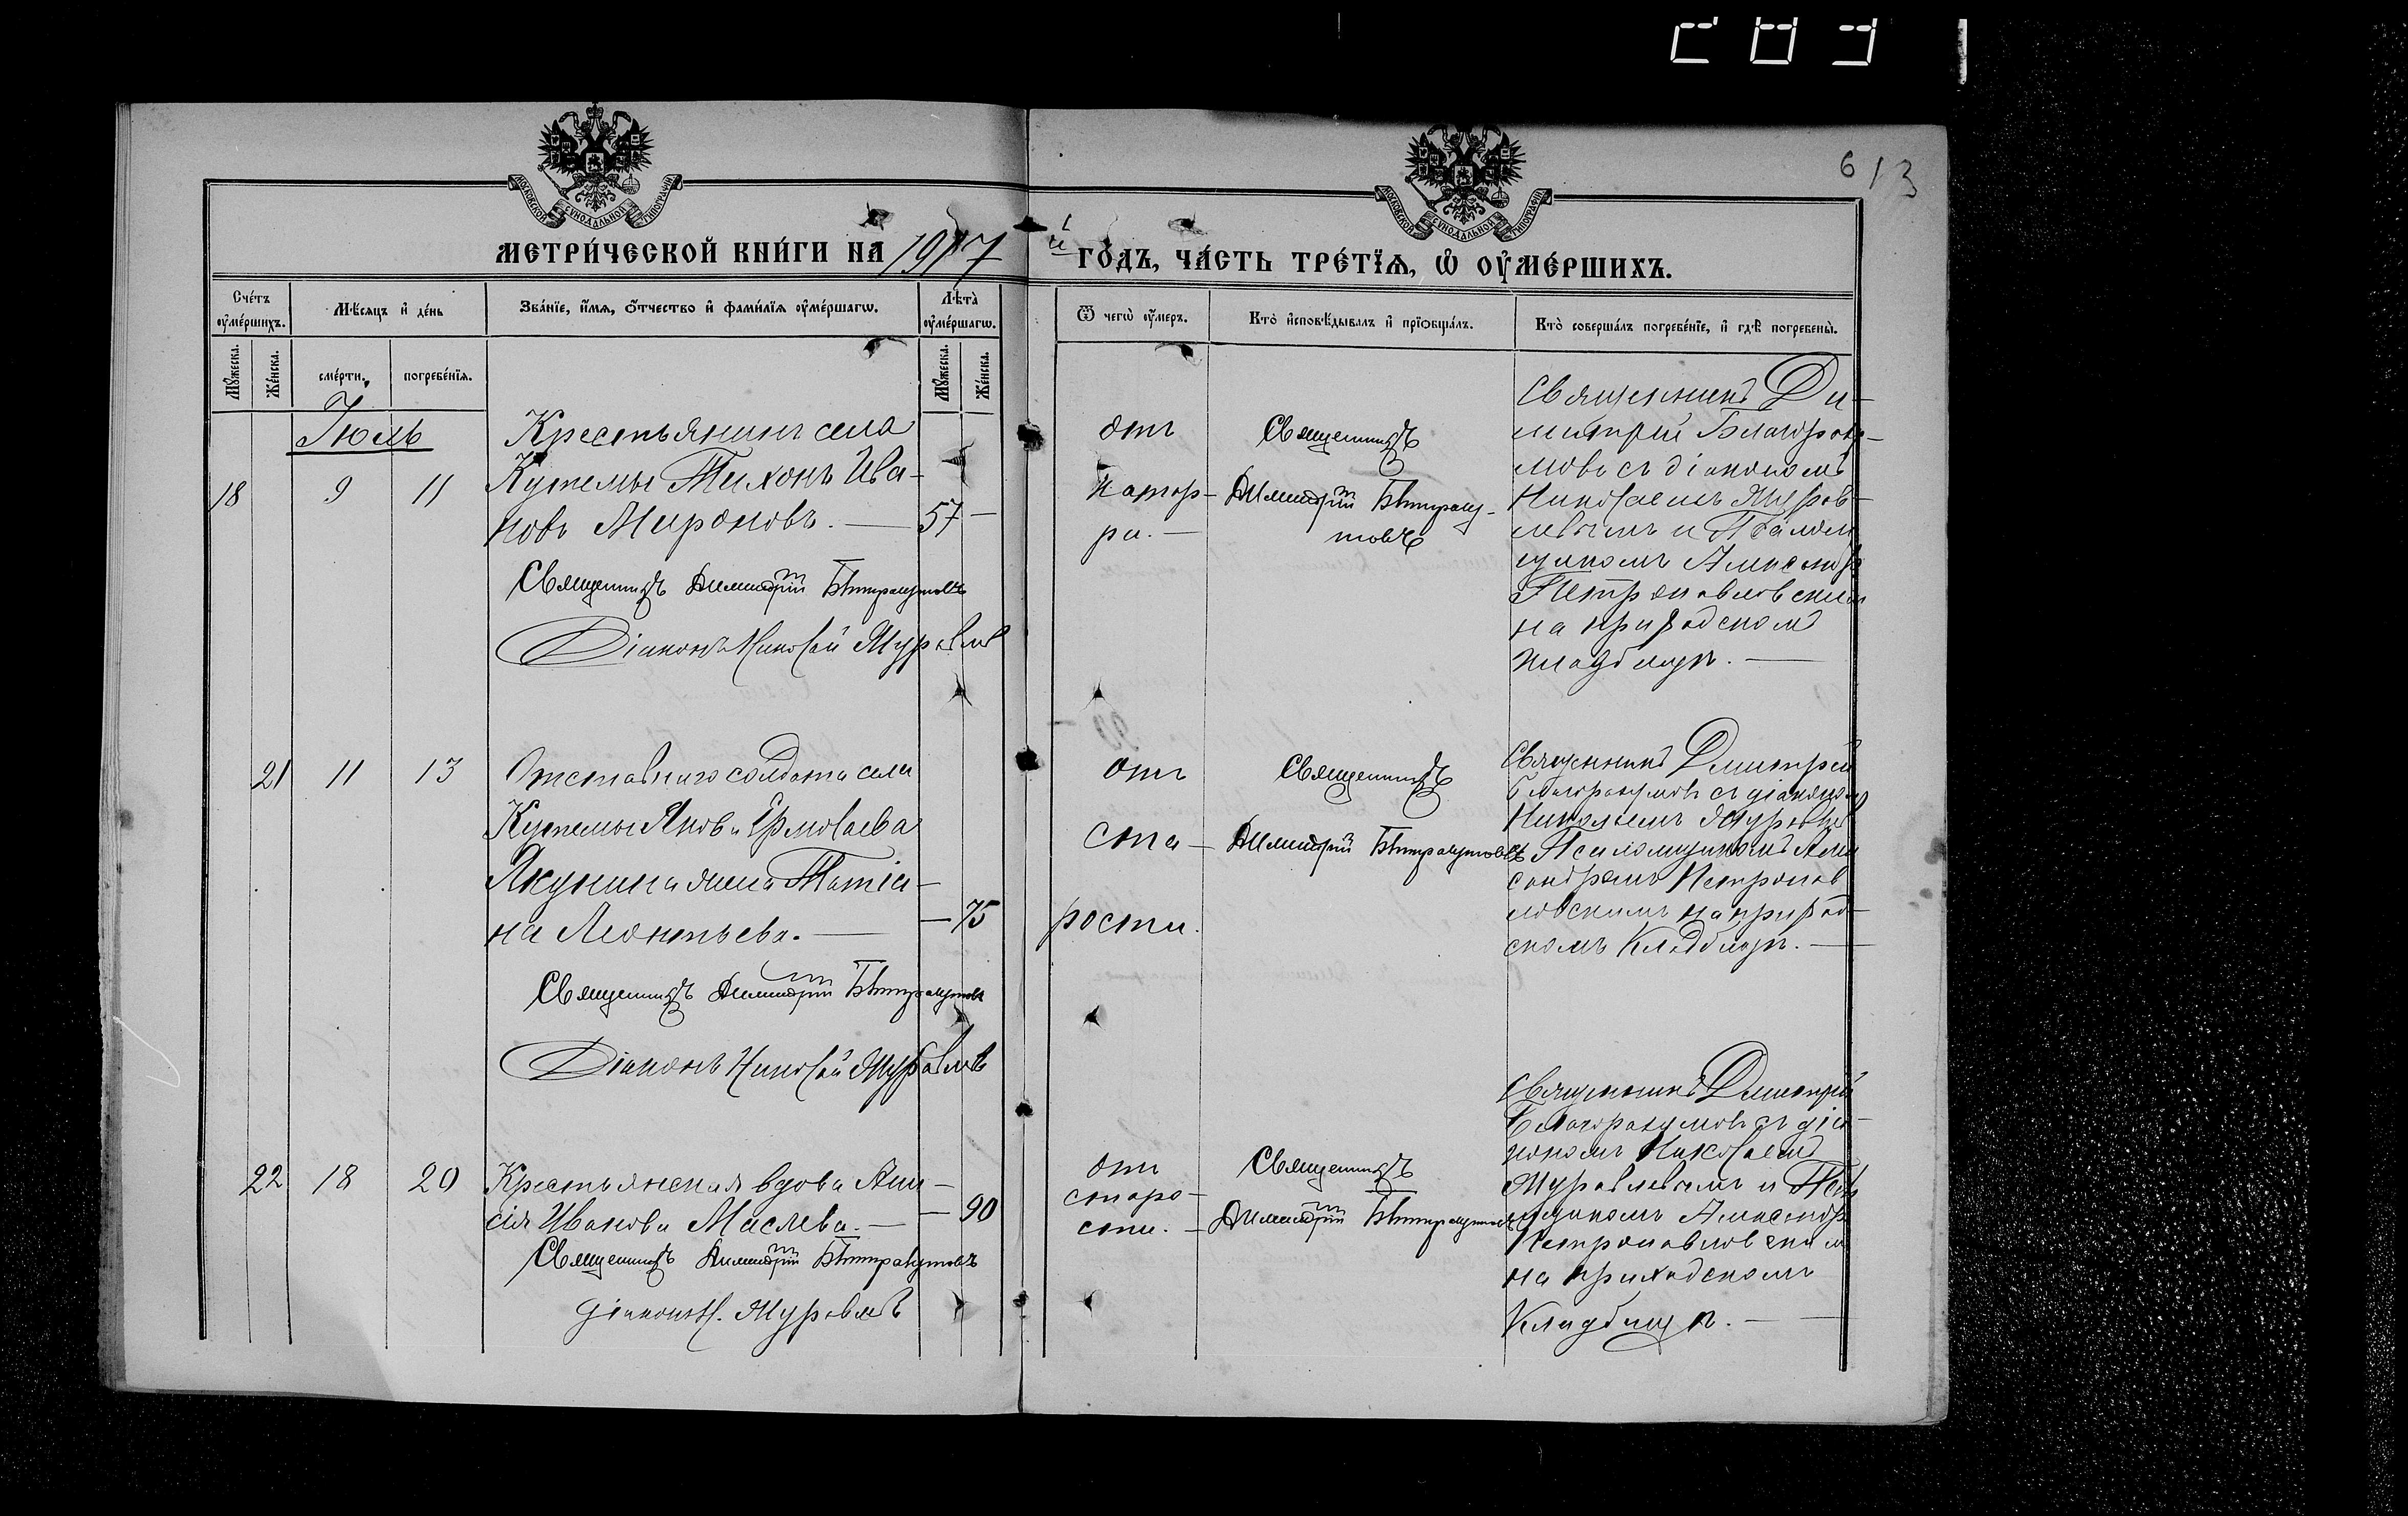 613
МОСКОВСКОЙ СУНОДАЛЬНОЙ ТИПОГРАФІИ
МОСКОВСКОЙ СУНОДАЛЬНОЙ ТИПОГРАФІИ
МЕТРИ́ЧЕСКОЙ КНИ́ГИ НА 1917 й ГО́ДЪ, ЧА́СТЬ ТРЕ́ТЇѦ, Ѡ҆ ОУ҆МЕ́РШИХЪ.
Сче́тъ оу҆ме́ршихъ.
Мѣ́сѧцъ и҆ де́нь
Зва́нїе, и҆́мѧ, ѻ҆́тчество и҆ фами́лїѧ оу҆ме́ршагѡ.
Лѣ́та оу҆ме́ршагѡ.
Ѿ чегѡ̀ оу҆́меръ.
Кто̀ и҆сповѣ́дывалъ и҆ прїѡбща́лъ.
Кто̀ соверша́лъ погребе́нїе, и҆ гдѣ̀ погребены̀.
Мꙋ́жеска.
Же́нска.
сме́рти.
погребе́нїѧ.
Мꙋ́жеска.
Же́нска.
Іюль
18
9
11
Крестьянинъ села
Кутемы Тихонъ Ива-
новъ Мироновъ. —
57 —
Священникъ Димитрій Благоразумовъ
Діаконъ Николай Журавлевъ
отъ
катор-
ра. —
Священникъ
Димитрій Благоразу-
мовъ
Священникъ Ди-
митрій Благоразу-
мовъ съ діакономъ
Николаемъ Журав-
левымъ и Псаломщ
щикомъ Александр
Петропавловским
на приходскомъ
кладбищѣ. —
21
11
13
Отставнаго солдата села
Кутемы Якова Ермолаева
Якунина жена Татіа-
на Леонтьева. —
— 75
Священникъ Димитрій Благоразумовъ
Діаконъ Николай Журавлевъ
отъ
ста-
рости.
Священникъ
Димитрій Благоразумовъ
Священникъ Димитрій
Благоразумовъ съ діакономъ
Николаемъ Журавлев
и Псаломщикомъ Алек
сандромъ Петропав
ловскимъ на приход-
скомъ кладбищѣ. —
22
18
20
Крестьянская вдова Ани-
сія Иванова Маслева. —
— 90
Священникъ Димитрій Благоразумовъ
Діаконъ Н. Журавлевъ
отъ
старо-
сти. —
Священникъ
Димитрій Благоразумовъ
Священникъ Димитрій
Благоразумовъ съ діа-
кономъ Николаемъ
Журавлевымъ и Псало
мщикомъ Александр
Петропавловским
на приходскомъ
кладбищѣ. —